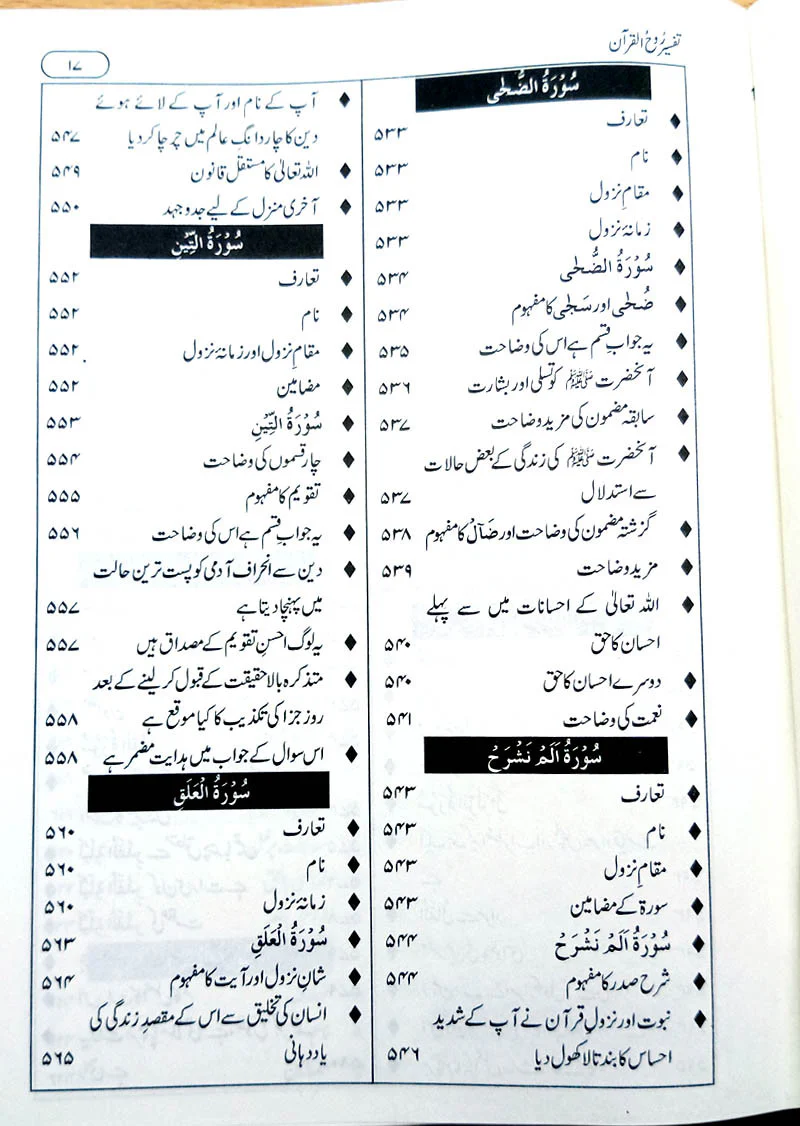 تفسیر روح القرآن
۱۷
سُوْرَةُ الضُّحٰى
♦ تعارف ۵۳۳
♦ نام ۵۳۳
♦ مقامِ نزول ۵۳۳
♦ زمانۂ نزول ۵۳۳
♦ سُوْرَةُ الضُّحٰى ۵۳۴
♦ ضُحٰى اور سَجٰى کا مفہوم ۵۳۴
♦ یہ جوابِ قسم ہے اس کی وضاحت ۵۳۵
♦ آنحضرت ﷺ کو تسلی اور بشارت ۵۳۶
♦ سابقہ مضمون کی مزید وضاحت ۵۳۷
♦ آنحضرت ﷺ کی زندگی کے بعض حالات
سے استدلال ۵۳۷
♦ گزشتہ مضمون کی وضاحت اور ضَآلّ کا مفہوم ۵۳۸
♦ مزید وضاحت ۵۳۹
♦ اللہ تعالیٰ کے احسانات میں سے پہلے
احسان کا حق ۵۴۰
♦ دوسرے احسان کا حق ۵۴۰
♦ نعمت کی وضاحت ۵۴۱
سُوْرَةُ اَلَمْ نَشْرَحْ
♦ تعارف ۵۴۳
♦ نام ۵۴۳
♦ مقامِ نزول ۵۴۳
♦ سورۃ کے مضامین ۵۴۳
♦ سُوْرَةُ اَلَمْ نَشْرَحْ ۵۴۴
♦ شرح صدر کا مفہوم ۵۴۴
♦ نبوت اور نزولِ قرآن نے آپ کے شدید
احساس کا بند تالا کھول دیا ۵۴۶
♦ آپ کے نام اور آپ کے لائے ہوئے
دین کا چار دانگِ عالم میں چرچا کر دیا ۵۴۷
♦ اللہ تعالیٰ کا مستقل قانون ۵۴۹
♦ آخری منزل کے لیے جدوجہد ۵۵۰
سُوْرَةُ التِّيْنِ
♦ تعارف ۵۵۲
♦ نام ۵۵۲
♦ مقامِ نزول اور زمانۂ نزول ۵۵۲
♦ مضامین ۵۵۲
♦ سُوْرَةُ التِّيْنِ ۵۵۳
♦ چار قسموں کی وضاحت ۵۵۴
♦ تقویم کا مفہوم ۵۵۵
♦ یہ جوابِ قسم ہے اس کی وضاحت ۵۵۶
♦ دین سے انحراف آدمی کو پست ترین حالت
میں پہنچا دیتا ہے ۵۵۷
♦ یہ لوگ احسنِ تقویم کے مصداق ہیں ۵۵۷
♦ متذکرہ بالا حقیقت کے قبول کر لینے کے بعد
روز جزا کی تکذیب کا کیا موقع ہے ۵۵۸
♦ اس سوال کے جواب میں ہدایت مضمر ہے ۵۵۸
سُوْرَةُ الْعَلَقِ
♦ تعارف ۵۶۰
♦ نام ۵۶۰
♦ زمانۂ نزول ۵۶۰
♦ سُوْرَةُ الْعَلَقِ ۵۶۳
♦ شانِ نزول اور آیت کا مفہوم ۵۶۴
♦ انسان کی تخلیق سے اس کے مقصدِ زندگی کی
یاددہانی ۵۶۵